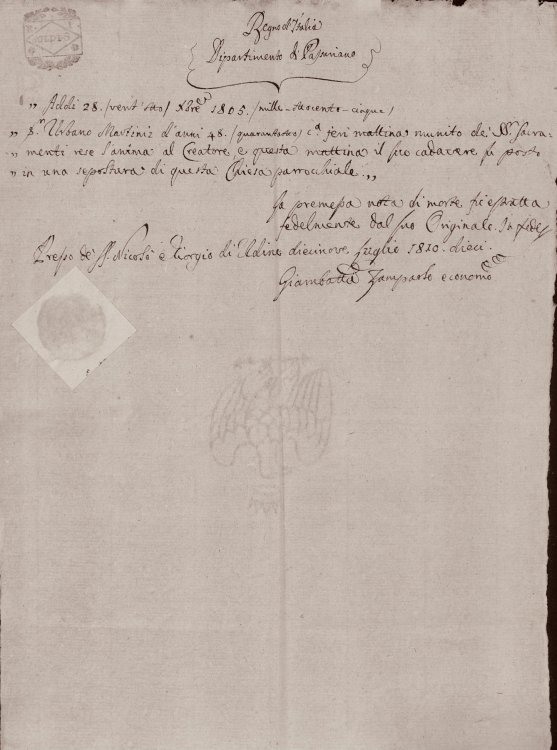 Regno d'Italia
Dipartimento di Passariano
„ Addi 28. /vent'otto/ Xbre 1805. /mille-ottocento-cinque/
„ Sr. Urbano Martinis d'anni 48. /quarantotto/ ca. jeri mattina munito de' SS. Sacra-
„ menti rese l'anima al Creatore, e questa mattina il suo cadavere fu posto
„ in una sepoltura di questa Chiesa parrocchiale. „
La premessa nota di morte fu estratta
fedelmente dal suo Originale. In fede
Presso de' SS. Nicolò e Giorgio di Udine diecinove luglio 1810. dieci.
Giambatta Zamparo economo